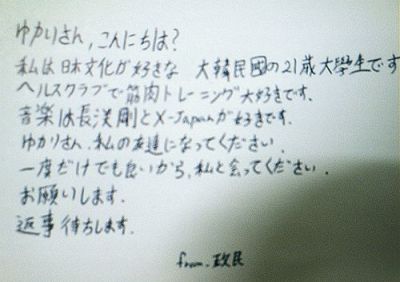 ゆかりさん,こんにちは?
私は日本文化が好きな 大韓民國の21歳大學生です
ヘルスクラブで筋肉トレーニング大好きです.
音楽は長渕剛とX-Japanが好きです.
ゆかりさん.私の友達になってください.
一度だけでも良いから,私と会ってください.
お願いします.
返事待ちします.
from.政民